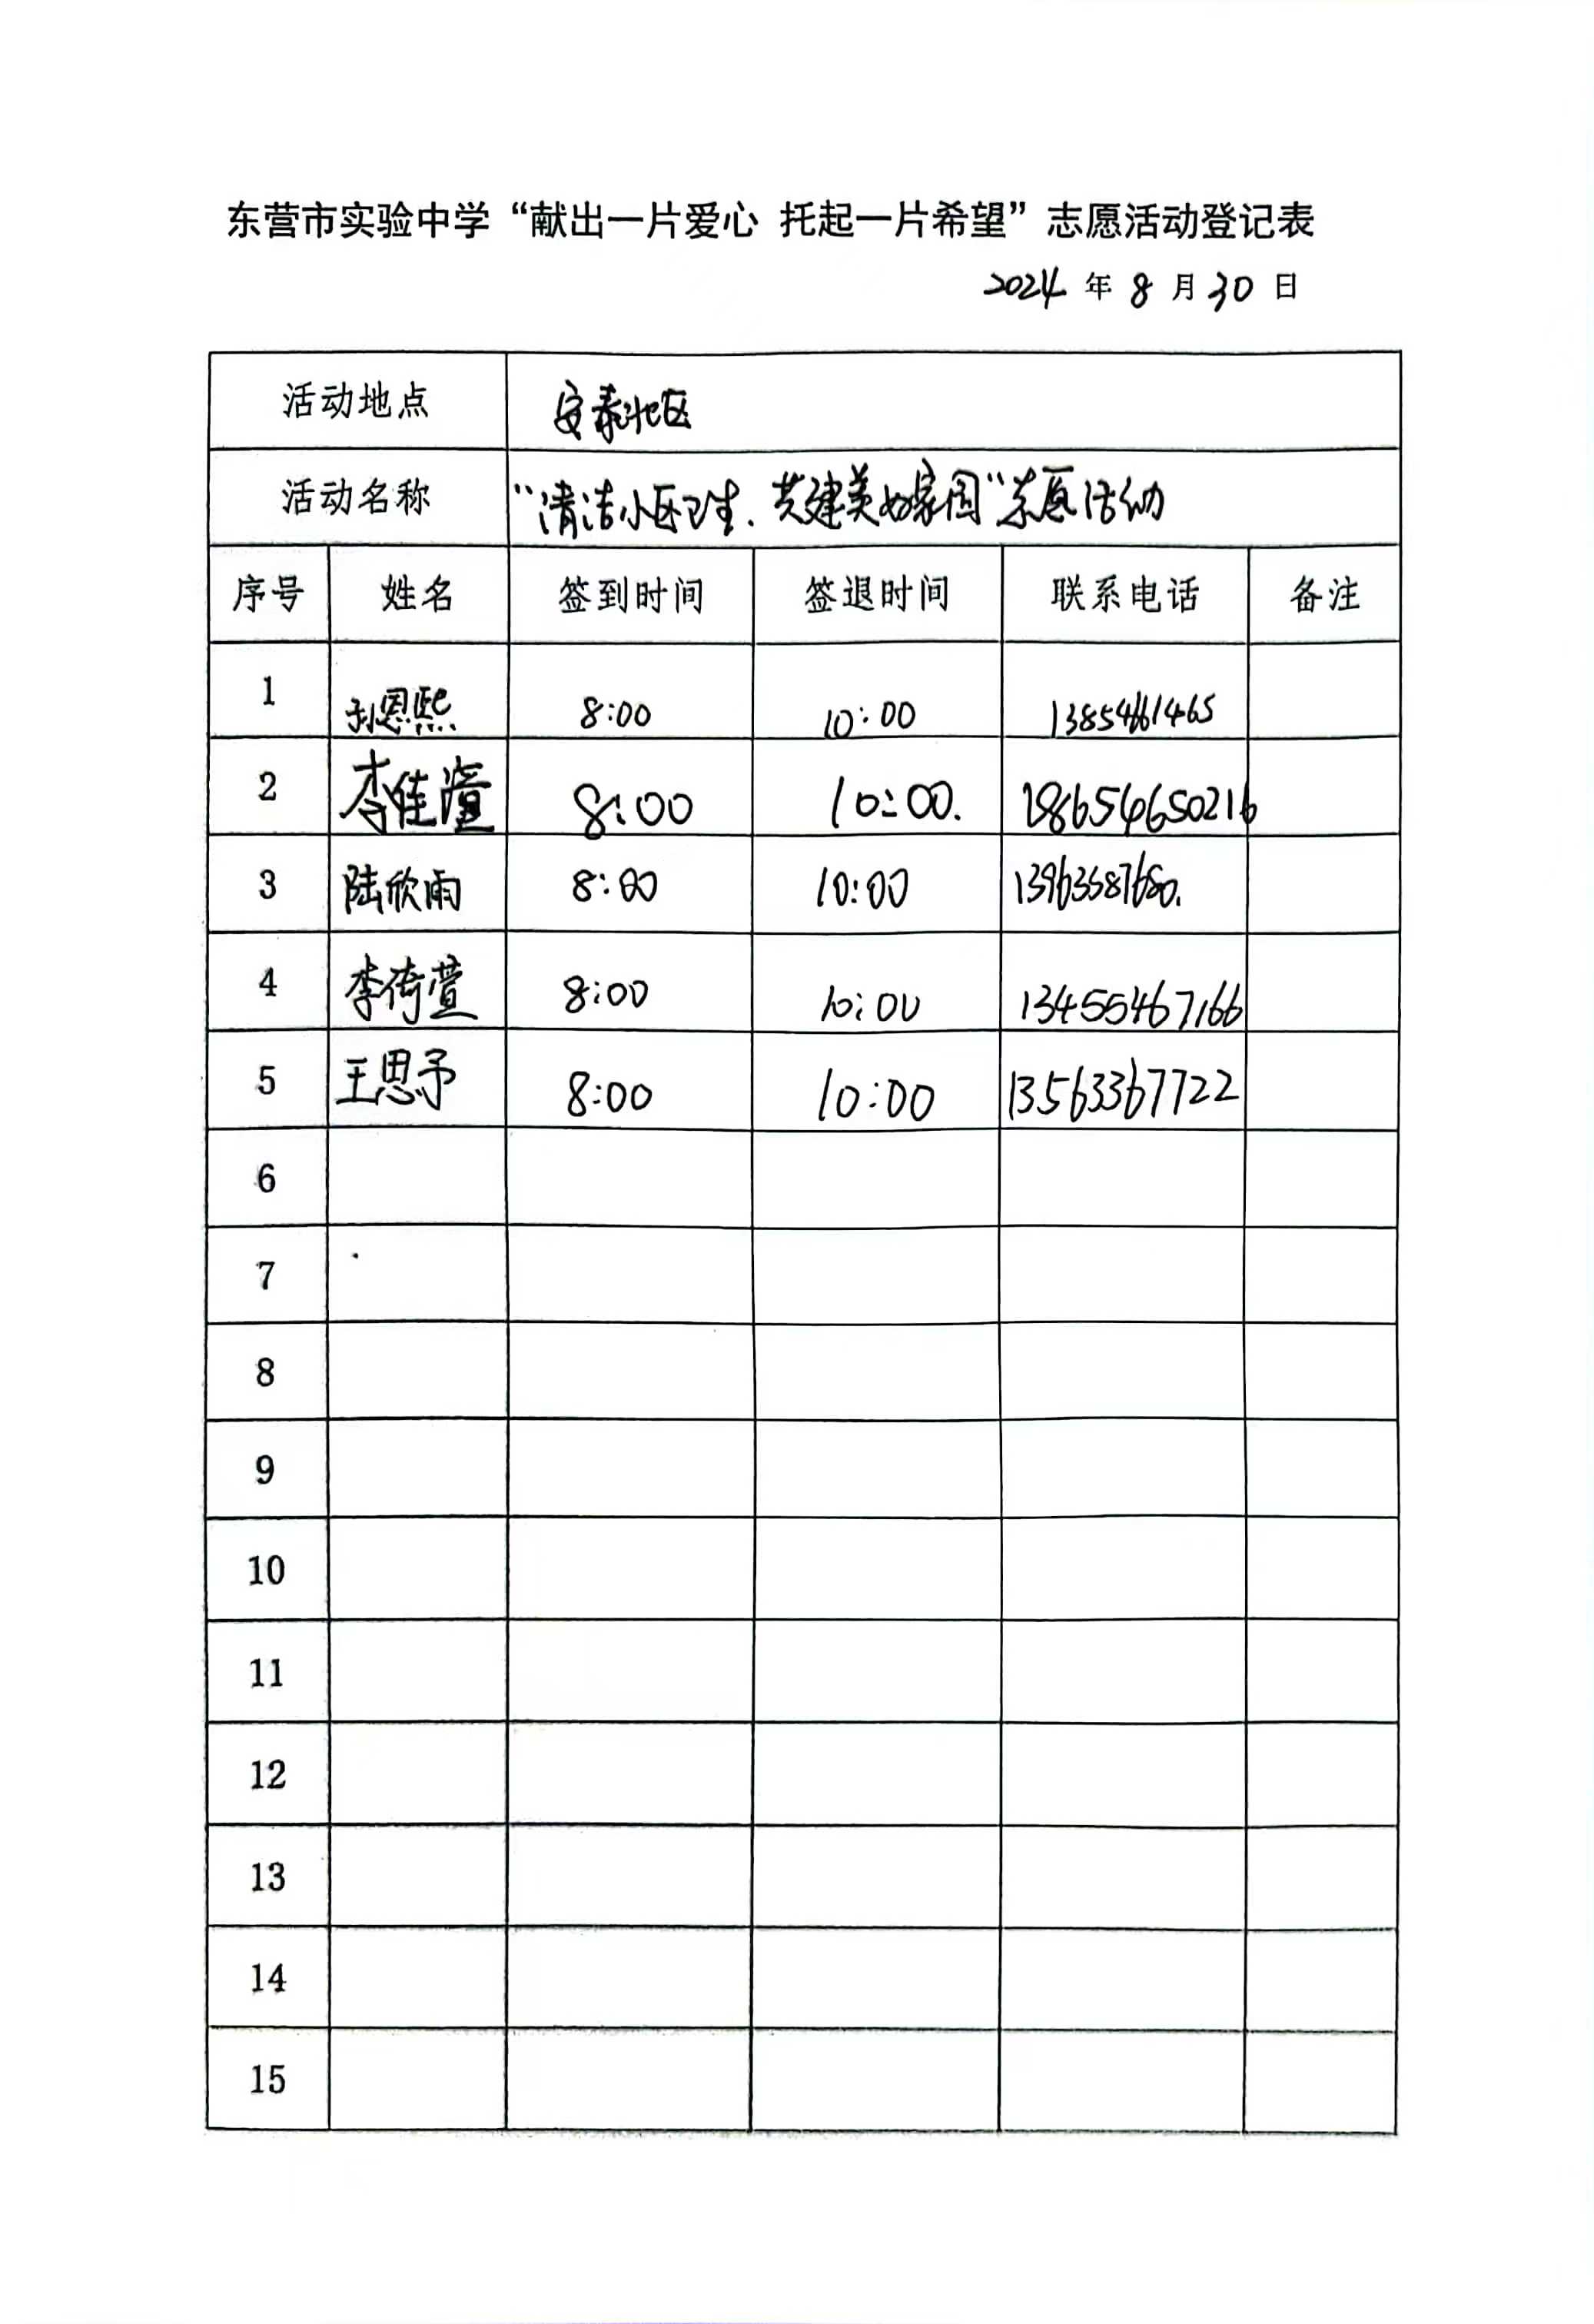 东营市实验中学“献出一片爱心 托起一片希望”志愿活动登记表
2024 年 8 月 30 日
活动地点 安泰北区
活动名称 “清洁小区卫生、共建美好家园”志愿活动
序号 姓名 签到时间 签退时间 联系电话 备注
1 恩熙 8:00 10:00
2 李佳潼 8:00 10:00. 18654650216
3 陆欣雨 8:00 10:00 13963387680.
4 李倚萱 8:00 10:00 13455467166
5 王思予 8:00 10:00 13563367722
6
7
8
9
10
11
12
13
14
15